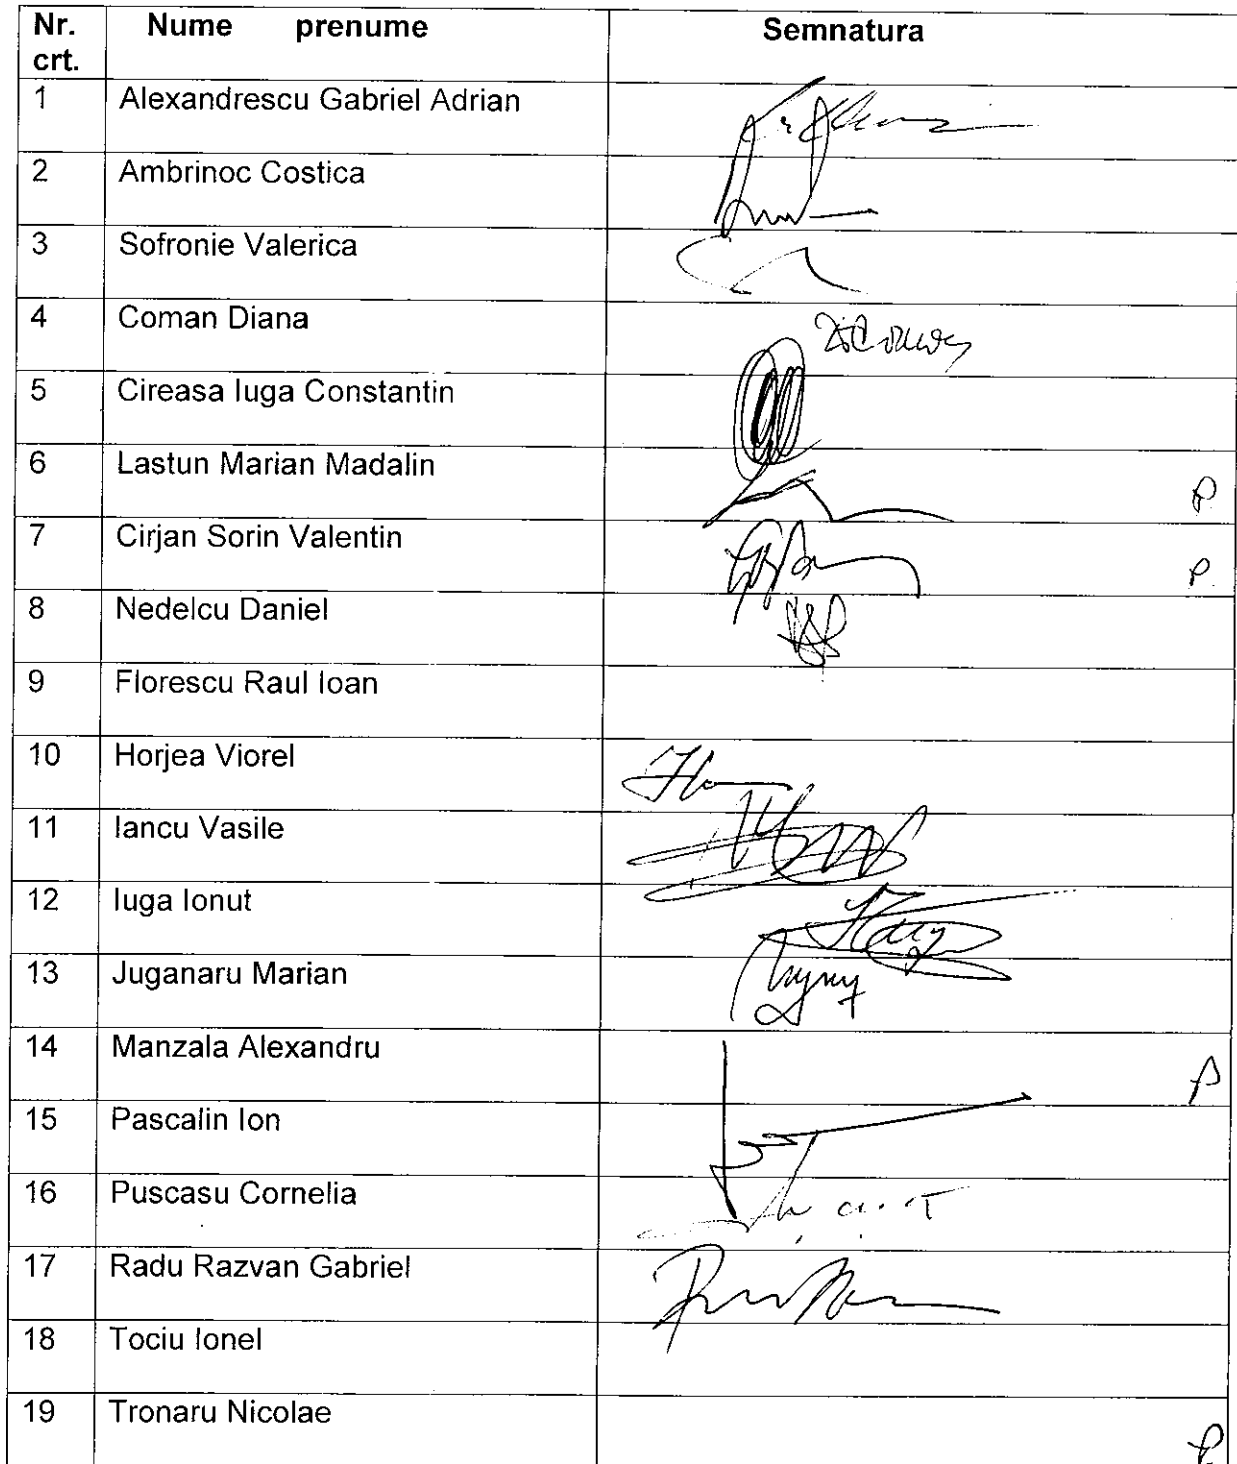 Nr. crt. Nume prenume Semnatura
1 Alexandrescu Gabriel Adrian
2 Ambrinoc Costica
3 Sofronie Valerica
4 Coman Diana
5 Cireasa Iuga Constantin
6 Lastun Marian Madalin P.
7 Cirjan Sorin Valentin P.
8 Nedelcu Daniel
9 Florescu Raul Ioan
10 Horjea Viorel
11 Iancu Vasile
12 Iuga Ionut
13 Juganaru Marian
14 Manzala Alexandru P
15 Pascalin Ion
16 Puscasu Cornelia
17 Radu Razvan Gabriel
18 Tociu Ionel
19 Tronaru Nicolae P.